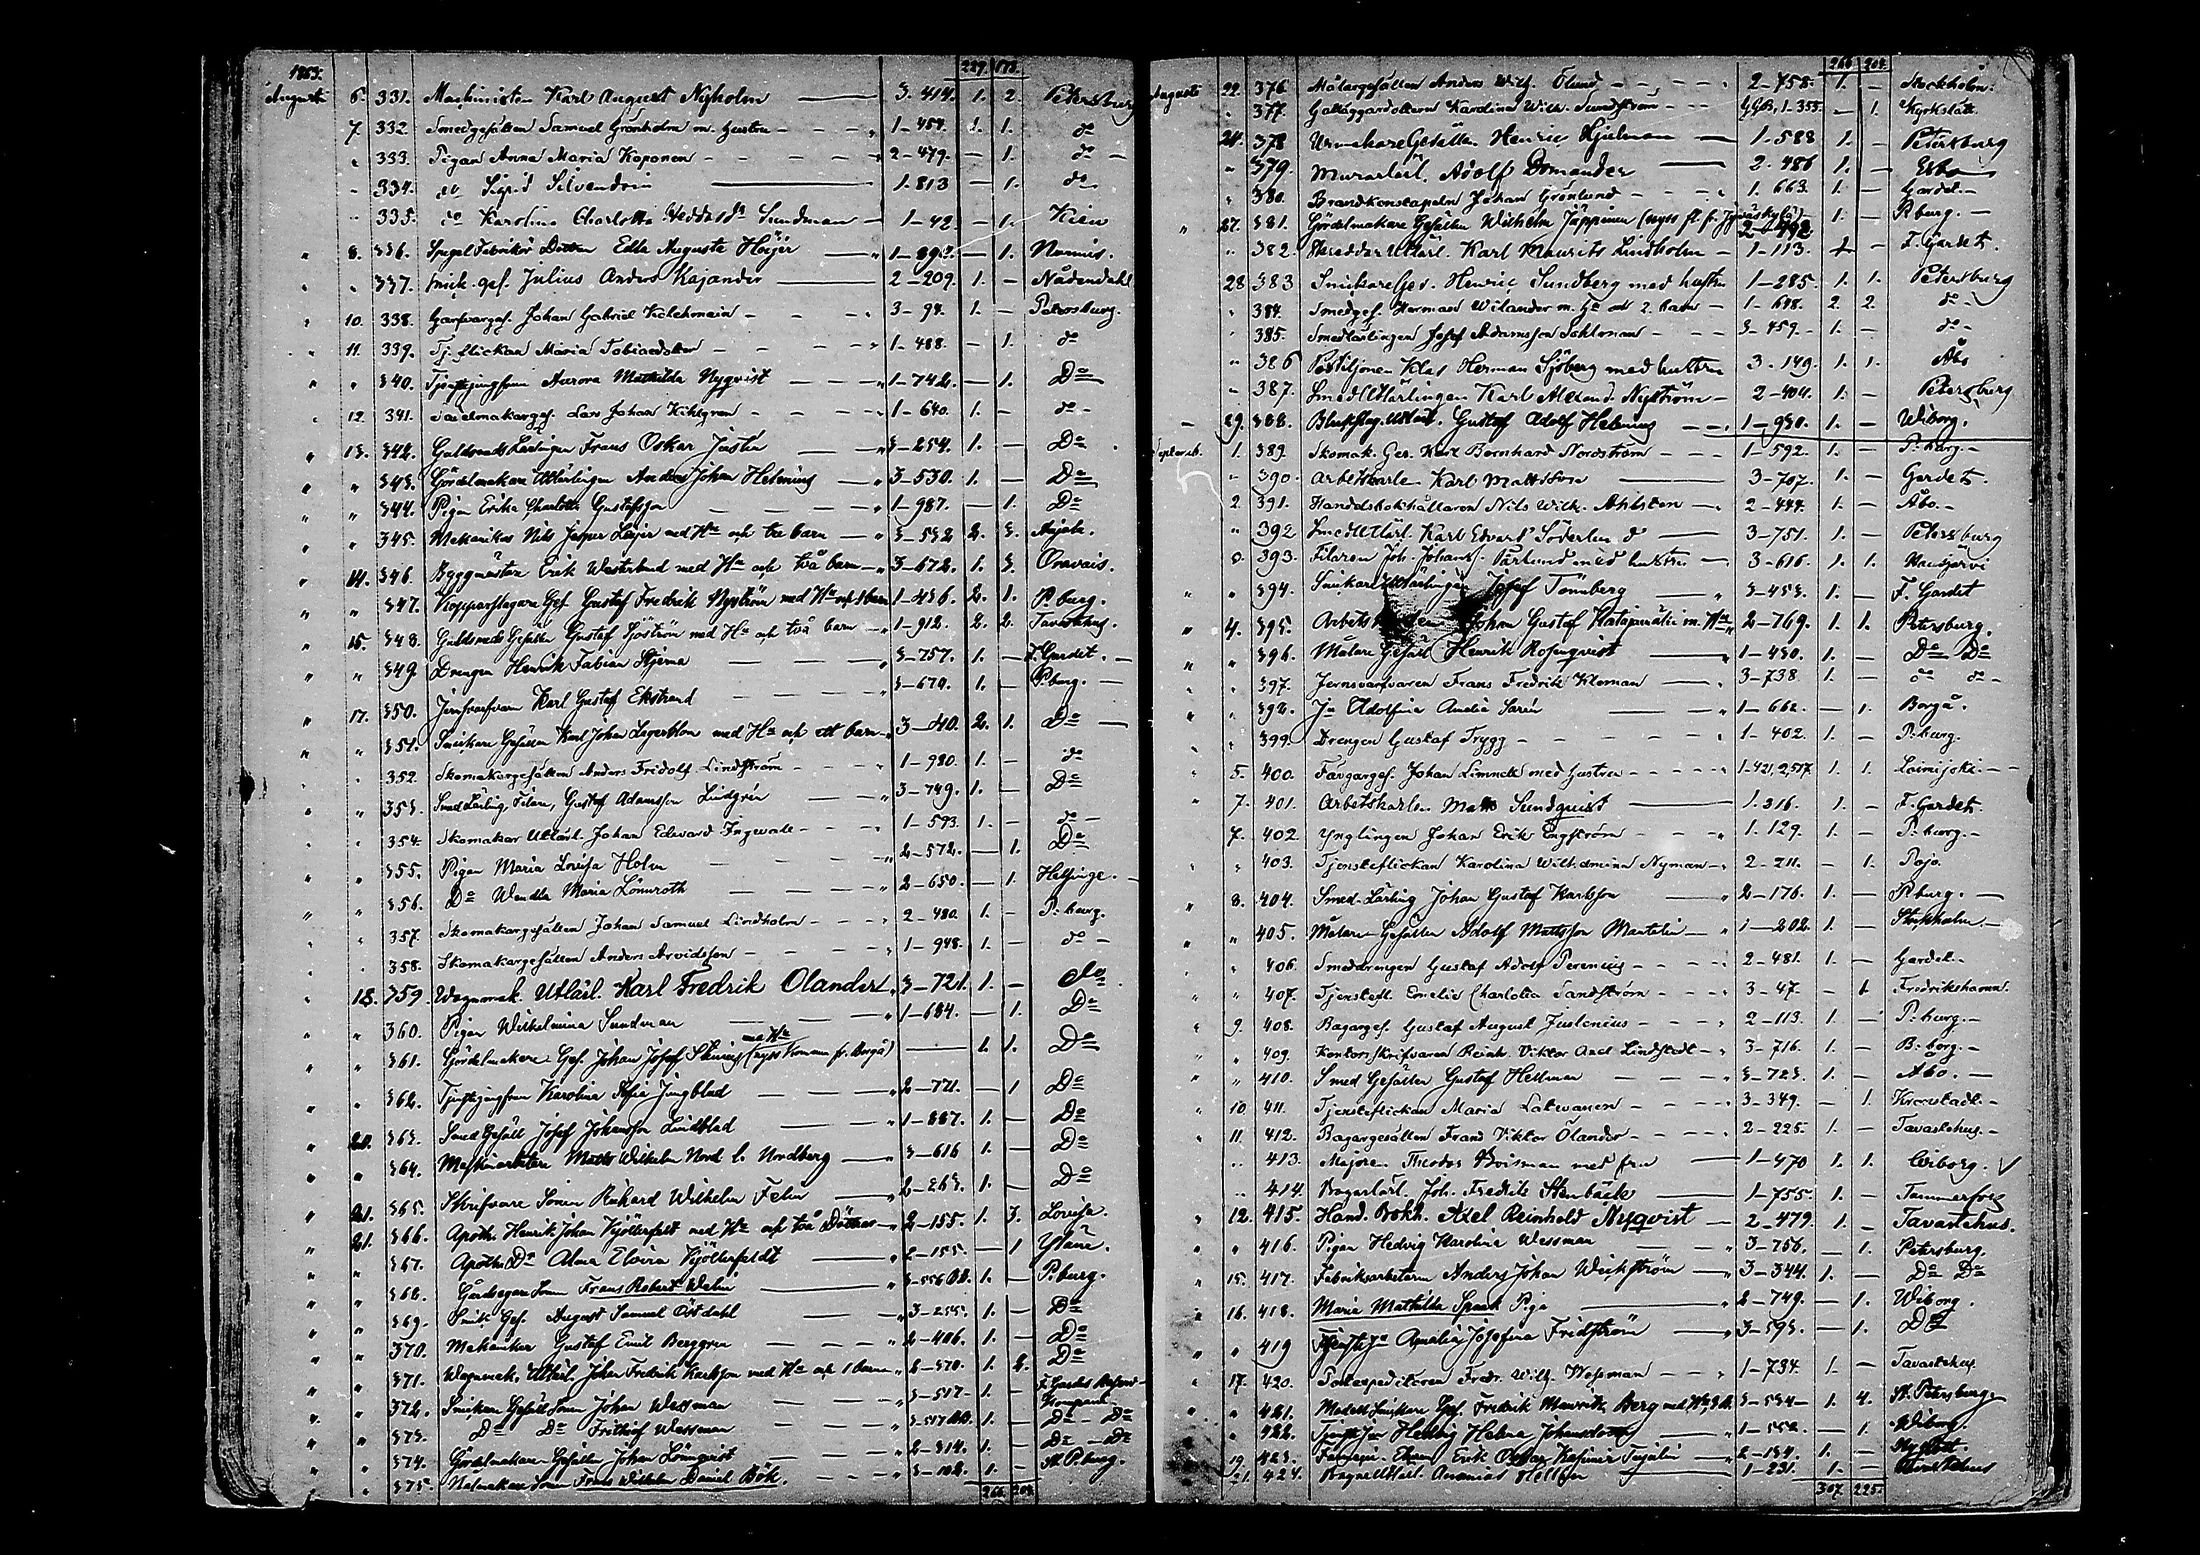 1863.
227. 178.
Augusti 6. 331. Machinisten Karl August Nyholm 3-414. 1. 2. Petersburg
7. 332. Smedgesällen Samuel Grönholm m. hustru 1-454. 1. 1. do
333. Pigan Anna Maria Koponen 2-479. — 1. do
334. do Sigrid Silvendoin 1.813 — 1. do
335. do Karolina Charlotta Sundman 1-42. — 1. Kiev
8. 336. Spegel Fabrikör Dottren Edla Augusta Höijer — 1. Nummis.
337. Snick. gef. Julius Anders Kajander 2-209. 1. — Nådendahl
10. 338. Garfvargef. Johan Gabriel 3-94. 1. — Petersburg.
11. 339. Tj. flickan Maria Tobiasdotter 1-488. — 1. do
340. Tjenstejungfrun Aurora Mathilda Nyqvist 1-742. — 1. Do
12. 341. Sadelmakargef. Lars Johan Kihlgren 1-640. 1. — do
13. 342. Guldsmeds Lärlingen Frans Oskar Justin 3-254. 1. — Do
343. Gördelmakare Utlärlingen Anders Johan Helenius 3-530. 1. — Do
344. Pigan Erika Charlotta Gustafsson 1-987. — 1. Do
345. Mekanikus Nils Jesper Leijer med Hu och tre barn 3-532 2. 3.
14. 346. Byggmästare Erik Westerlund med Hu och två barn 3-672. 1. 3. Oravais.
347. Kopparslagare Gef. Gustaf Fredrik Nyström med Hu och 1 barn 1-436. 2. 1. P.burg.
15. 348. Guldsmeds Gesällen Gustaf Sjöström med Hu och två barn 1-912. 2. 2. Tavastehus.
349. Drengen Henrik Fabian Stjerna 3-757. 1. — F. Gardet.
17. 350. Karl Gustaf Ekstrand 3-679. 1. — P.burg.
351. Snickare Gesällen Karl Johan Lagerblom med Hu och ett barn 3-40. 2. 1. Do
352. Skomakargesällen Anders Fridolf Lindström 1-980. 1. — do
353. Smed Lärling Gustaf Adamsson Lindgrén 3-749. 1. — Do
354. Skomakar Utlärl. Johan Edward Ingewald 1-593. 1. — do
355. Pigan Maria Lovisa Holm 2-572. — 1. Do
356. Do Wendla Maria Lönnroth 2-650. — 1. Helsinge.
357. Skomakargesällen Johan Samuel Lindholm 2-480. 1. — P.burg.
358. Skomakargesällen Anders Arvidsson 1-948. 1. — do
18. 359. Wagnmak. Utlärl. Karl Fredrik Olander 3-721. 1. — do
360. Pigan Wilhelmina Sundman 1-684. — 1. Do
361. Gördelmakare Gef. Johan Josef med Hu (nyss kommen fr. Borgå) 1. 1. Do
362. Tjenstejungfrun Karolina Sofia Ljungblad 2-771. — 1 Do
20. 363. Smed Gesäll Josef Johansson Lindblad 1-887. 1. — Do
364. Maskinarbetare Matts Wilhelm Nord l. Nordberg 3-616 1. — Do
21. 365. Skrifvare Sonen Rikard Wilhelm Felin 2-263. 1. — Do
21. 366. Apoth. Henrik Johan Kjöllerfeldt med Hu och två Döttrar 2-155. 1. 3. Lovisa.
367. Apoth. Dr Alma Elvira Kjöllerfeldt 2-155. — 1 Yläne.
368. Gårdsegare Sonen Frans Robert Welin 3-556 1. — P.burg.
369. Snick. Gef. August Samuel Östdahl 3-255. 1. — Do
370. Mekanikus Gustaf Emil Berggren 2-406. 1. — Do
371. Wagnmak. Utlärl. Johan Fredrik Karlsson med Hu och 1 barn 2-370. 1. 2. Do
372. Snickare Gesäll Sonen Johan Wessman 3-517. 1. — F. Gardes Kompani
373. Do Do Frithiof Wessman 3-517 1. — Do Do
374. Gördelmakare Gesällen Johan Lönnqvist 2-314. 1. — Do Do
375. Hatmakare Sonen Frans Wilhelm Daniel Bök. 3-102. 1. — St. P.burg.
266. 204.
266 204.
Augusti 22. 376. Målargesällen Anders Wilh. Ölund 2-758. 1. — Stockholm.
377. Karolina Wilh. Sundström 1.355. — 1. Kyrkslätt.
24. 378 Urmakare Gesällen Henric Hjelman 1-588 1. — Petersburg
379. Murarlärl. Adolf Domander 2.486 1. — Esbo
380. Brandkonstapeln Johan Grönlund 1.663. 1. — Gardet.
27. 381. Gördelmakare Gesällen Wilhelm Jäppinen (nyss fl. fr. Jyväskylä) 2-492 1. — P.burg.
382. Skreddar Utlärl. Karl Maurits Lindholm 1-113. 1 — F. Gardet.
28 383 Snickare Ges. Henric Sundberg med hustru 1-285. 1. 1. Petersburg
384. Smedgef. Herman Wilander m. Hu och 2 barn 1-648. 2. 2. do
385. Smedlärlingen Josef Adamsson Sahlman 3-459. 1. — do
386 Postiljonen Klas Herman Sjöberg med hustru 3.149. 1. 1. Åbo
387. Smed Utlärlingen Karl Alexand. Nyström 2-404. 1. — Petersburg
29. 388. Blekslag. Utlärl. Gustaf Adolf Helenius 1-930. 1. — Wiborg.
Septemb. 1. 389. Skomak. Ges. Karl Bernhard Nordström 1-592. 1. — P.burg.
390. Arbetskarlen Karl Mattsson 3-707. 1. — Gardet.
2 391. Handelsbokhållaren Nils Wilh. Ahlsten 2-444. 1. — Åbo.
392 Smed Utlärl. Karl Edvard Söderlund 3-751. 1. — Petersburg
3. 393. Filaren Joh. Johans. Parlund med hustru 3-616. 1. 1. Hausjärvi
394. Snickare Utlärlingen Josef Tönnberg 3-453. 1. — F. Gardet
4. 395. Johan Gustaf m. Hu 2-769. 1. 1. Petersburg.
396. Målare Gesäll Henrik Rosenqvist 1-430. 1. — Do Do
397. Jernsvarfvaren Frans Fredrik Kleman 3-738 1. — do do
398. Jn Adolfina Amelie Sarén 1-662. — 1. Borgå.
399. Drengen Gustaf Trygg 1-402. 1. — P.burg.
5. 400. Färgargef. Johan Limnell med hustru 1-421, 2,517. 1. 1. Loimijoki.
7. 401. Arbetskarlen Matts Sundquist 1.316. 1. — F. Gardet.
7. 402. Ynglingen Johan Erik Engström 1.129. 1. — P.burg.
403. Tjensteflickan Karolina Wilhelmina Nyman 2-211. — 1. Pojo.
8. 404. Smed-Lärling Johan Gustaf Karlsson 2-176. 1. — P.burg.
405. Målare-Gesällen Adolf Mattsson Mantelin 1-202. 1. — Stockholm.
406. Smeddrengen Gustaf Adolf Perenius 2-481. 1. — Gardet.
407. Tjenstefl. Emelie Charlotta Sandström 3-47. — 1. Fredrikshamn.
9. 408. Bagargef. Gustaf August Juslenius 2-113. 1. — P.burg.
409. Kontorsskrifvaren Reinh. Viktor Axel Lindstedt 3-716. 1. — B.borg.
410. Smed Gesällen Gustaf Hellman 3-723. 1. — Åbo.
10. 411. Tjensteflickan Maria Lakwanen 3-349. — 1. Kronstadt.
11. 412. Bagargesällen Frans Viktor Ölander 2-225. 1. — Tavastehus.
413. Majoren Theodor Boisman med fru 1-470 1. 1. Wiborg.
414. Bagarlärl. Joh. Fredrik Stenbäck 1-755. 1. — Tammerfors
12. 415. Hand. Bokh. Axel Reinhold Nyqvist 2-479. 1. — Tavastehus.
416. Pigan Hedvig Karolina Wessman 3-756. — 1. Petersburg.
15. 417. Fabriksarbetaren Anders Johan Weckström 3-344. 1. — Do Do
16. 418. Maria Mathilda Spaak Piga 2-749. — 1. Wiborg.
419 Amalia Josefina Fridström 3-593. — 1. Do
17. 420. Postexpeditoren Fredr. Wilh. Wessman 1-734. 1. — Tavastehus.
421. Modell Snickare Gef. Fredrik Mauritz Berg med Hu, 3 b. 3-554 1. 4. St. Petersburg.
422. Tjenste Jn Hedvig Helena Johansdotter 1-552. — 1. Wiborg.
19. 423. Erik Oskar Kasimir 2-134. 1. — Nyslott.
21. 424. Wagn Utlärl. Ananias 1-221. 1. — Tavastehus
307. 225.